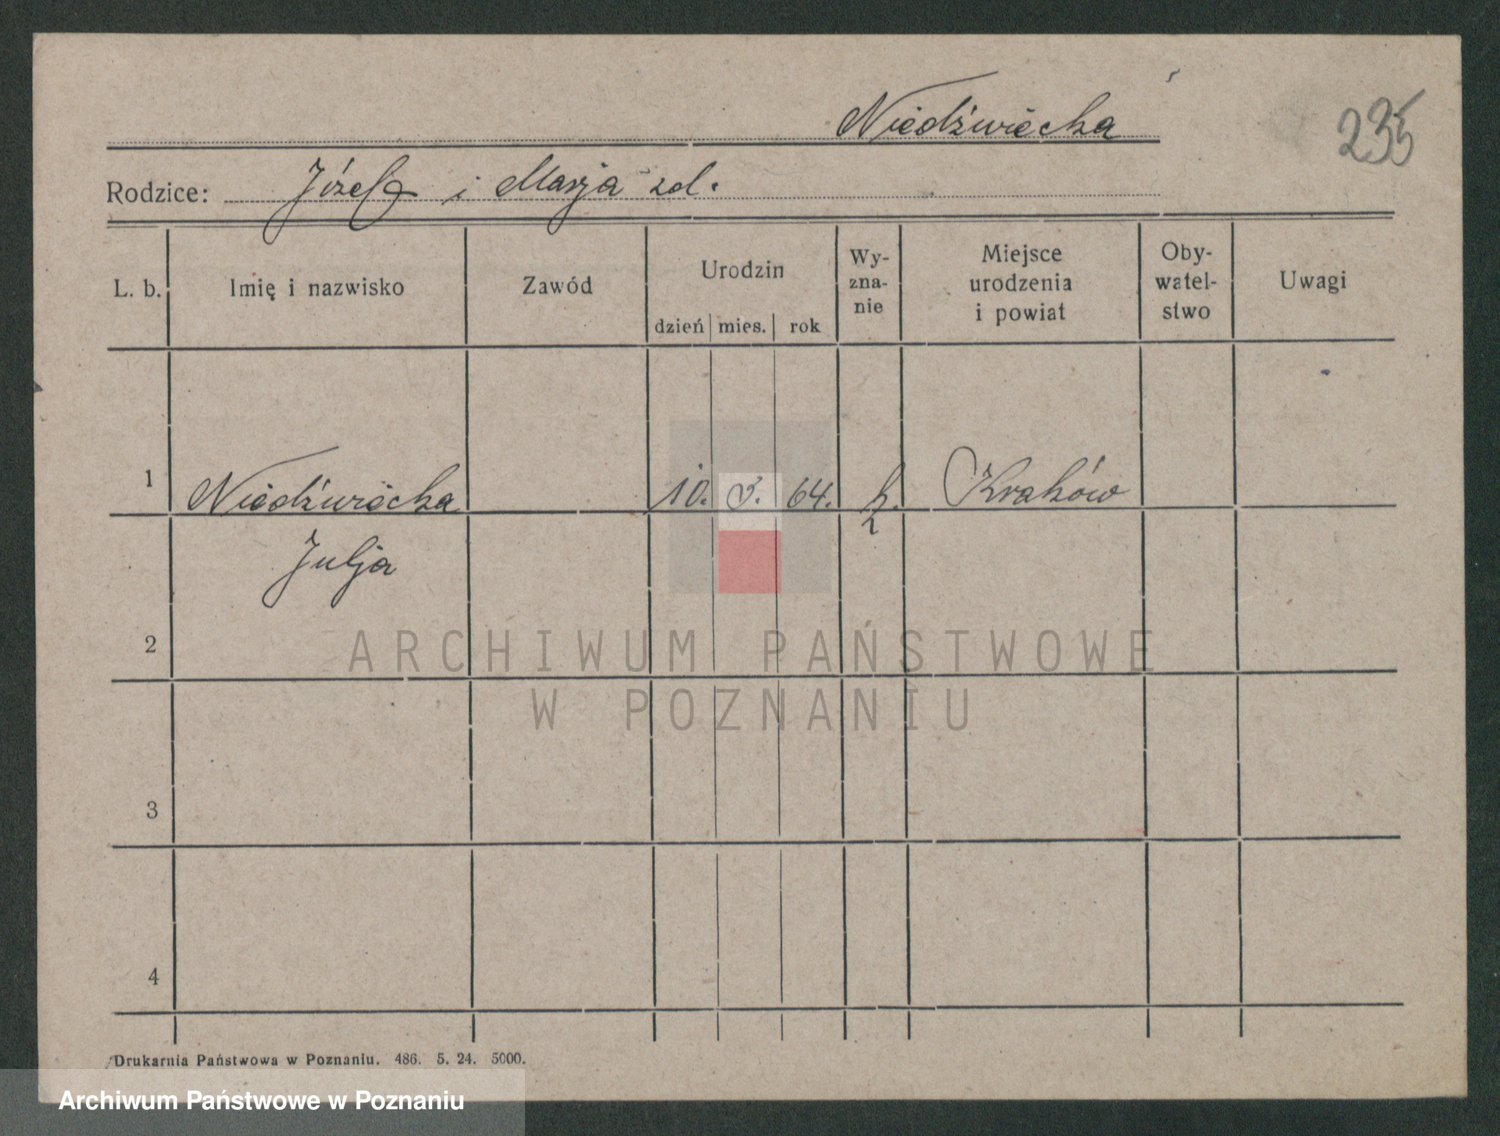 Niedźwiecka
235
Rodzice: Józef i Marja zd.
L. b.
Imię i nazwisko
Zawód
Urodzin
dzień mies. rok
Wy-
zna-
nie
Miejsce
urodzenia
i powiat
Oby-
watel-
stwo
Uwagi
1 Niedźwiecka 10. 3. 64. Kraków
Julja
2
3
4
ARCHIWUM PAŃSTWOWE
W POZNANIU
Drukarnia Państwowa w Poznaniu. 486. 5. 24. 5000.
Archiwum Państwowe w Poznaniu